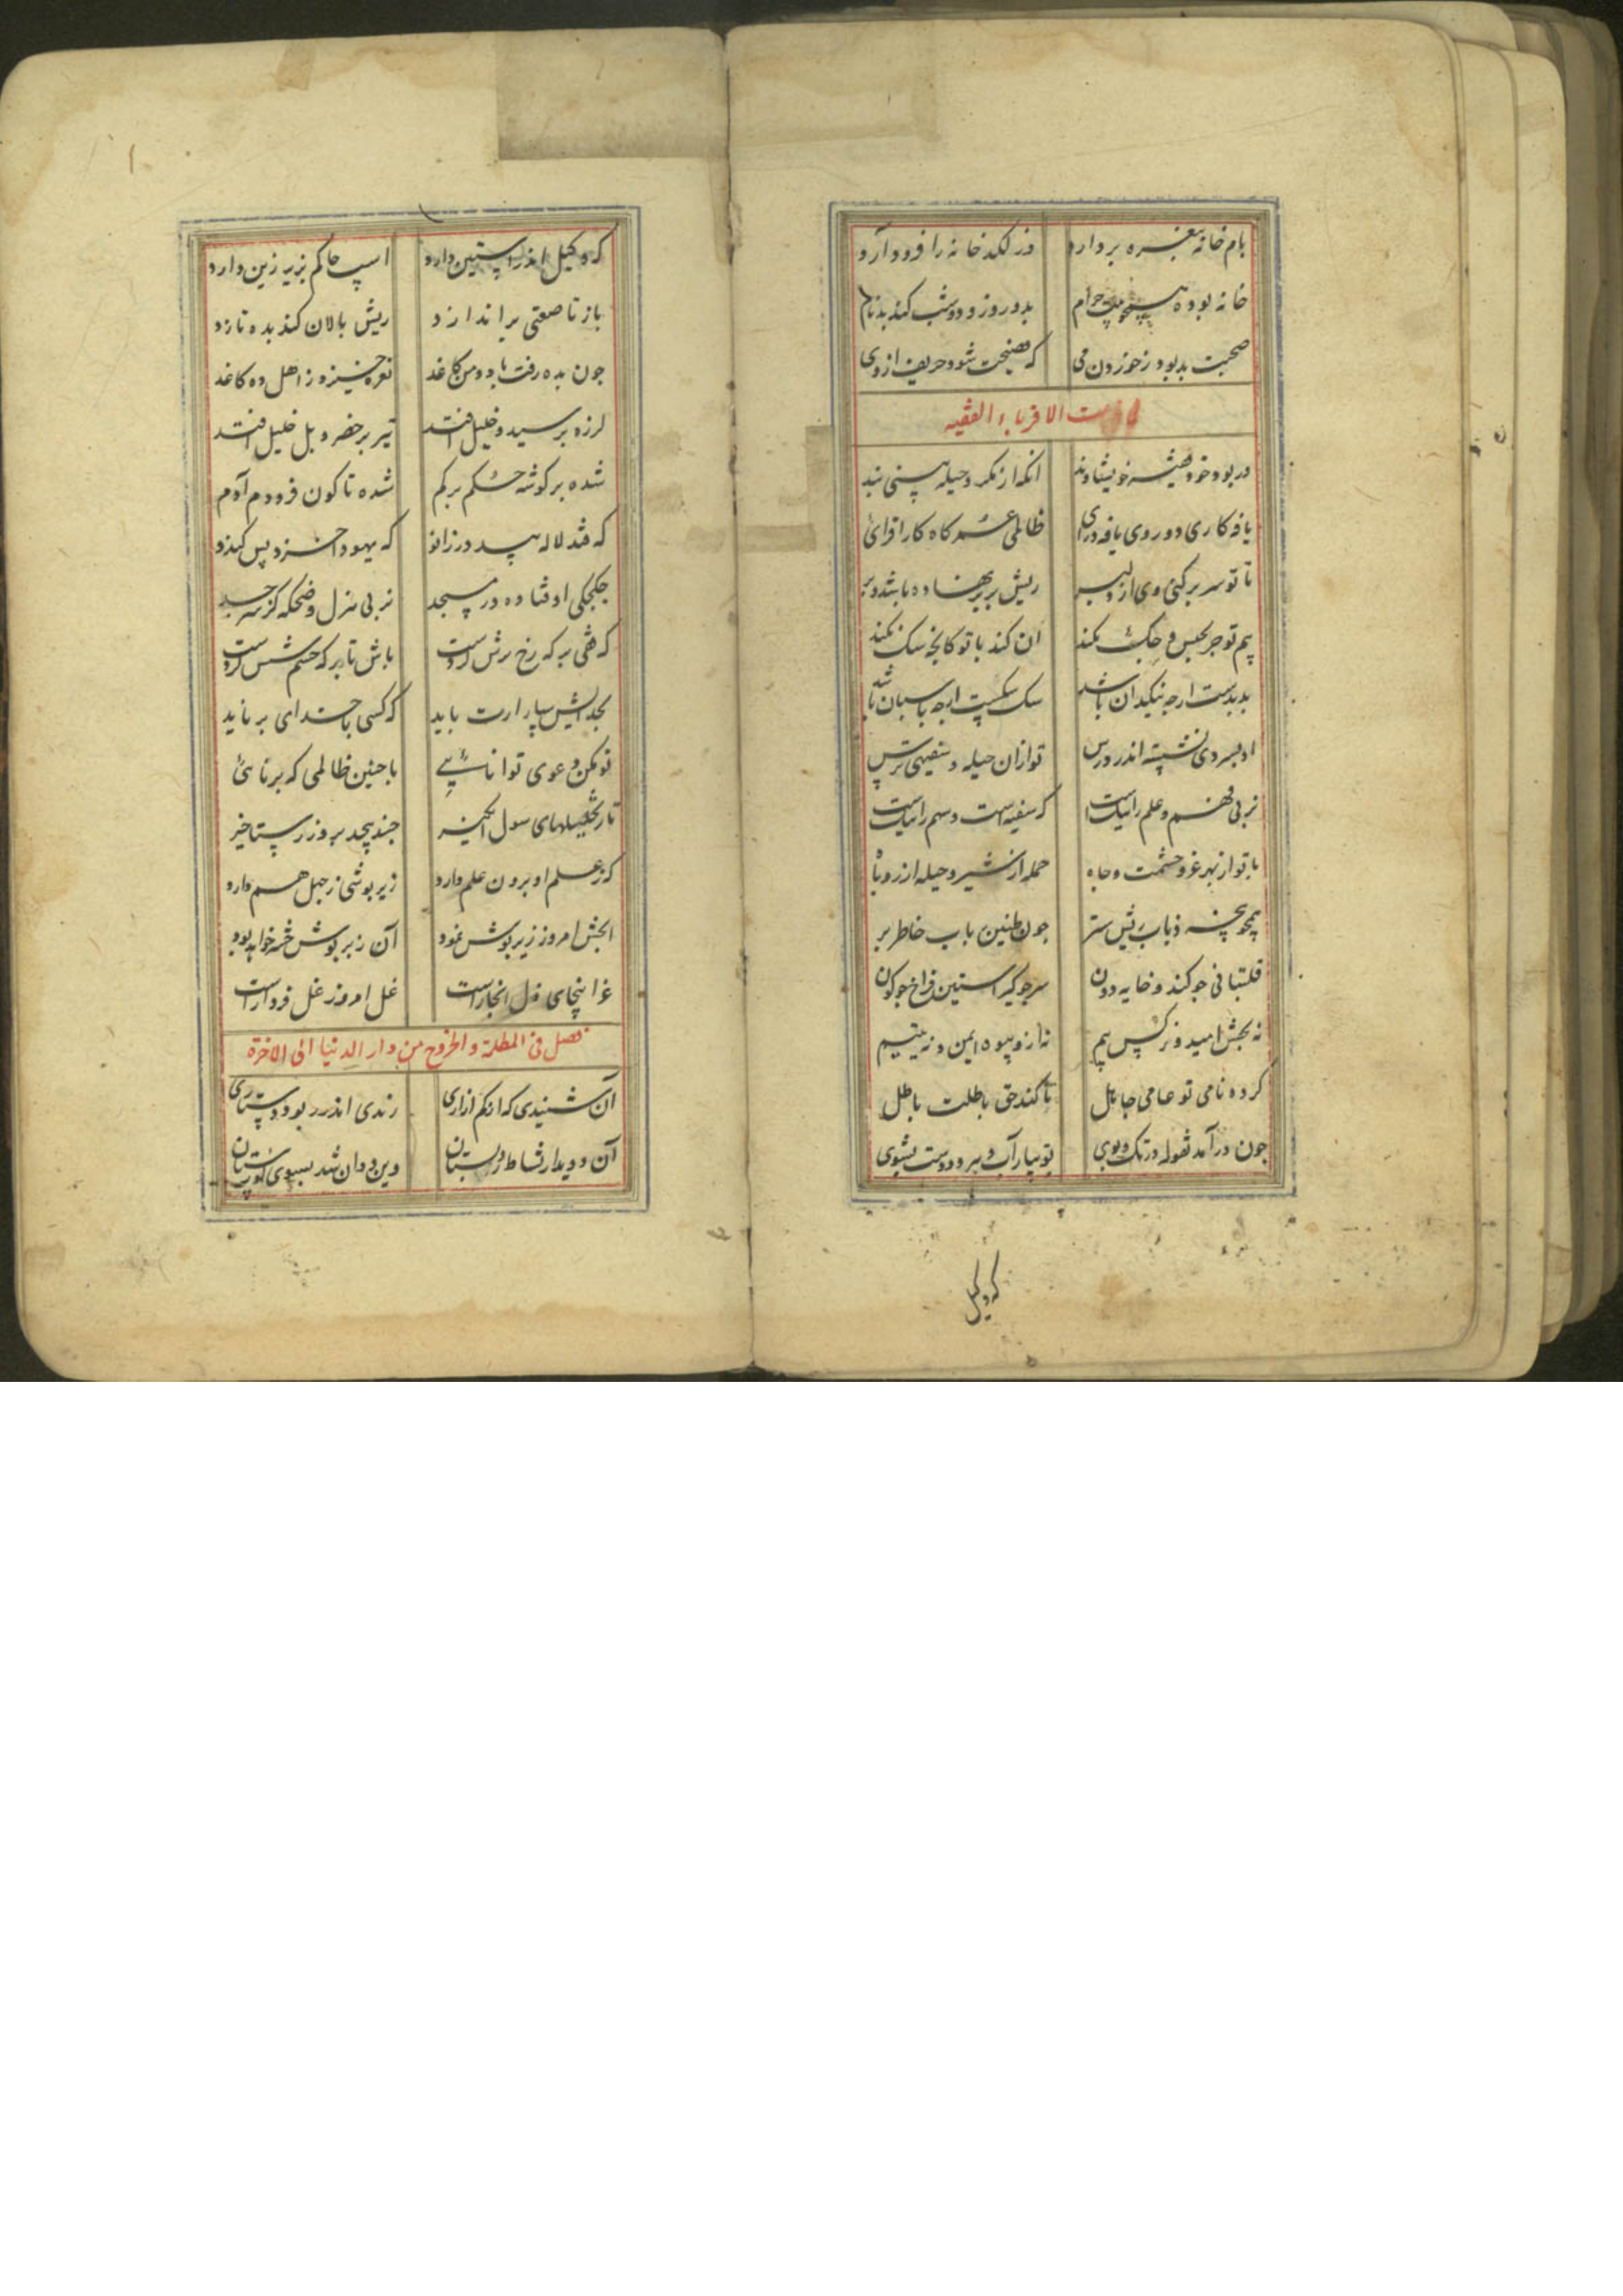 بام خانه بنعره بردارد وز لکد خانه را فرود آرد
خانه بوده حرام بدو روز و دو شب کند بدنام
صحبت بد بود ز خوردن می که فضیحت شود حریف از وی
الاقرباء الفقیه
ور بود خود فقیه خویشاوند انکه از مکر و حیله بینی بند
یافه کاری دوروی یافه درای ظالمی عمر کاه کار افزای
تا تو سر بر کنی وی از ریش بر بر نهاده باشد
بیم تو جز بحبس و جک نکند ان کند با تو کانچه سک نکند
بد بدست ارچه نیکدان باشد سک سکست ارچه پاسبان باشد
او بسردی نشسته اندر درس تو ازان حیله و سفیهی ترس
ز پی فهم و علم را نیک است که سفیه است و سهم را نیک است
با تو از بهر عز و حشمت و جاه حمله از شیر و حیله از روباه
همچو ذباب چون طنین باب خاطر بر
قلتبانی جو کند و خایه دون سر جو کیر استین فراخ جو کون
نه بخیرش امید و نز کس بیم نه ازو بیوه ایمن و نه یتیم
کرده نامی تو عامی جاهل تا کند حق باطلت باطل
جون در آمد فقوله در تک و پوی تو بیار آب و هر دو دست بشوی
که وکیل
که وکیل اندر استین دارد اسب حاکم بزیر زین دارد
باز تا صعتی براندازد ریش بالان کند بده تازد
جون بده رفت با دو من کاغد نعره خیزد ز اهل ده کاغد
لرزه بر سید و خلیل افتد تیر بر خضر و بل خلیل افتد
شده بر کوشه حکم بر کم شده تا کون فرو دم آدم
که فتد لاله در زانو که یهود
جکجکی اوفتاده در مسجد ز پی هزل و ضحکه
که قفی بر که رخ ترش کردست باش تا بر که خشم شش کردست
بخدایش سپار ارت باید که کسی با خدای بر ناید
تو مکن دعوی توانایی با جنین ظالمی که بر نایی
تا ز تخییلهای سول انکیز جند پیچد بروز رستاخیز
که ز علم او برون علم دارد زیر پوشی ز جهل هم دارد
انچش امروز زیر پوش نمود آن زبر پوش حشر خواهد بود
غل امروز غل فرداست
فصل فی المظلمة و الخروج من دار الدنیا الی الاخرة
آن شنیدی که از کم ازاری رندی اندر ربود دستاری
آن دوید از نشاط در بستان وین دوان شد بسوی کورستان